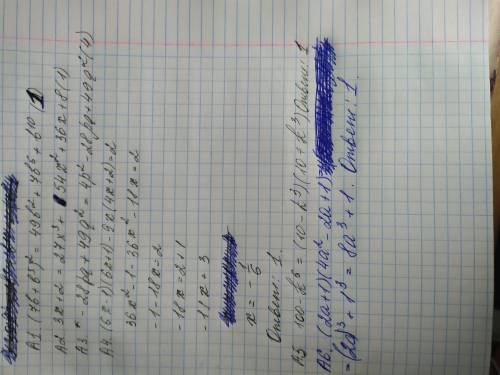 A1. (7b+b⁵)² = 49b² + 7b⁶ + b¹⁰ (1)
A2 3x+2 = 27x³ + 54x² + 36x + 8 (1)
A3 * - 28pq + 49q² = 4p² - 28pq + 49q² (4)
A4. (6x-1)(6x+1) - 9x(4x+2) = 2
36x² - 1 - 36x² - 18x = 2
-1 - 18x = 2
-18x = 2+1
-18x = 3
x = -1/6
Ответ: 1.
A5 100 - k⁶ = (10 - k³)(10 + k³) Ответ: 1
A6. (2a+1)(4a² - 2a+1) =
= (2a)³ + 1³ = 8a³ + 1. Ответ: 1.